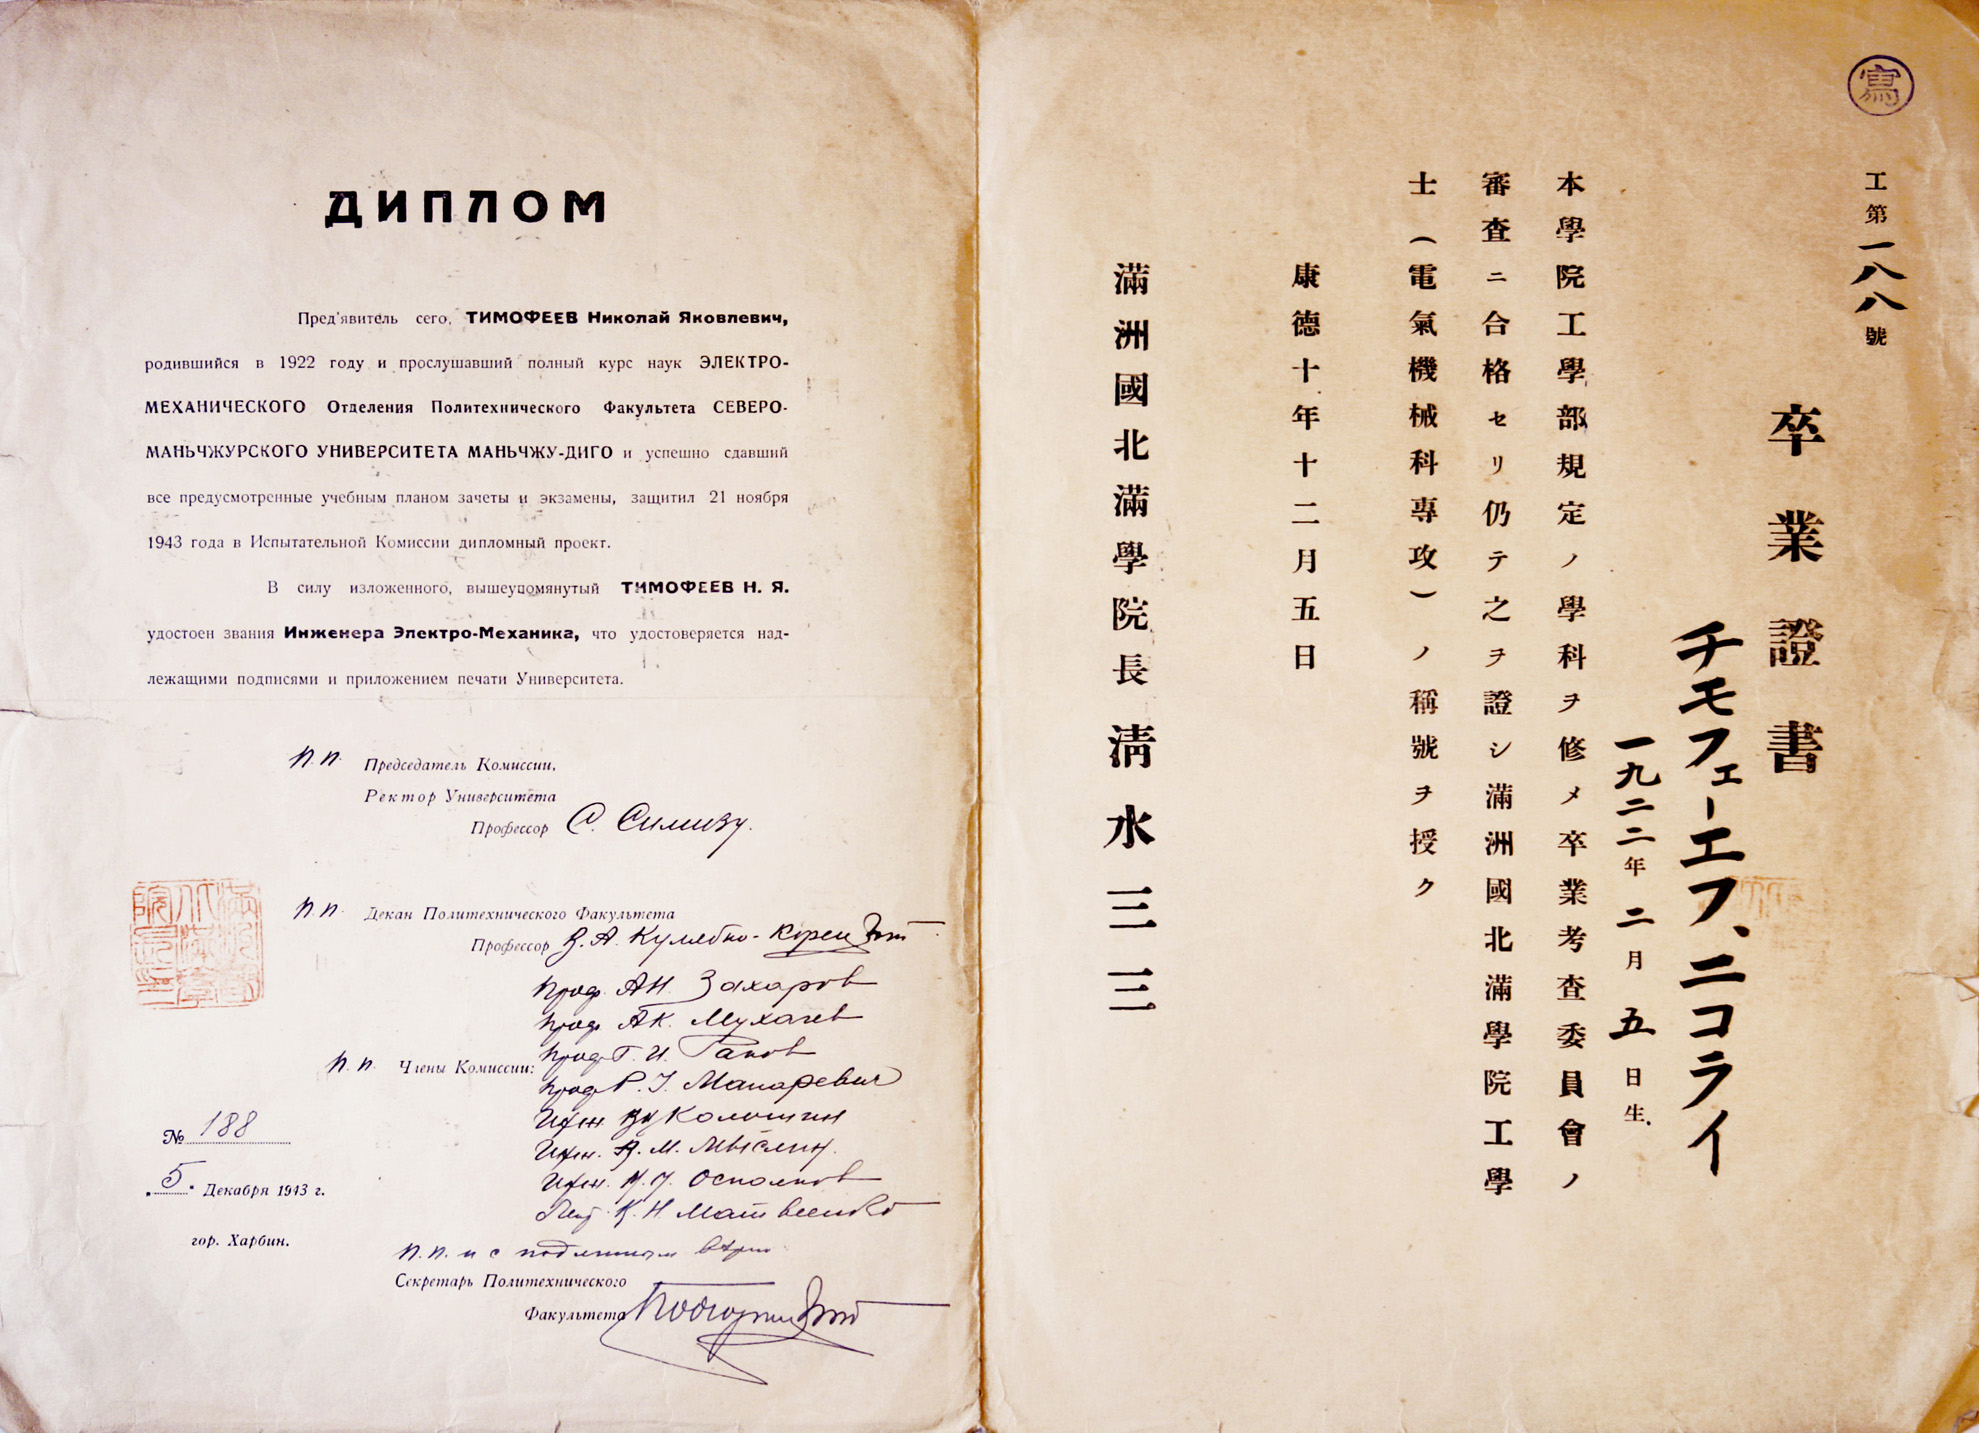 ДИПЛОМ
Пред'явитель сего, ТИМОФЕЕВ Николай Яковлевич,
родившийся в 1922 году и прослушавший полный курс наук ЭЛЕКТРО-
МЕХАНИЧЕСКОГО Отделения Политехнического Факультета СЕВЕРО-
МАНЬЧЖУРСКОГО УНИВЕРСИТЕТА МАНЬЧЖУ-ДИГО и успешно сдавший
все предусмотренные учебным планом зачеты и экзамены, защитил 21 ноября
1943 года в Испытательной Комиссии дипломный проект.
В силу изложенного, вышеупомянутый ТИМОФЕЕВ Н. Я.
удостоен звания Инженера Электро-Механика, что удостоверяется над-
лежащими подписями и приложением печати Университета.
п.п. Председатель Комиссии,
Ректор Университета
Профессор С. Симизу.
п.п. Декан Политехнического Факультета
Профессор В. А. Кулябко-Корецкий
проф. А.Н. Захаров
проф. А.К. Мухачев
проф. Г. И.
п.п. Члены Комиссии:
проф. Макаревич
Инж. Колошин
Инж. А. М. Мыслин.
Инж.
К. Н. Матвеенко
п.п. и с подлинным верно
Секретарь Политехнического
Факультета
№ 188
„5" Декабря 1943 г.
гор. Харбин.
寫
工第一八八號
卒業證書
チモフェーエフ、ニコライ
一九二二年二月五日生
本學院工學部規定ノ學科ヲ修メ卒業考査委員會ノ
審査ニ合格セリ仍テ之ヲ證シ滿洲國北滿學院工學
士(電氣機械科專攻)ノ稱號ヲ授ク
康德十年十二月五日
滿洲國北滿學院長淸水三三